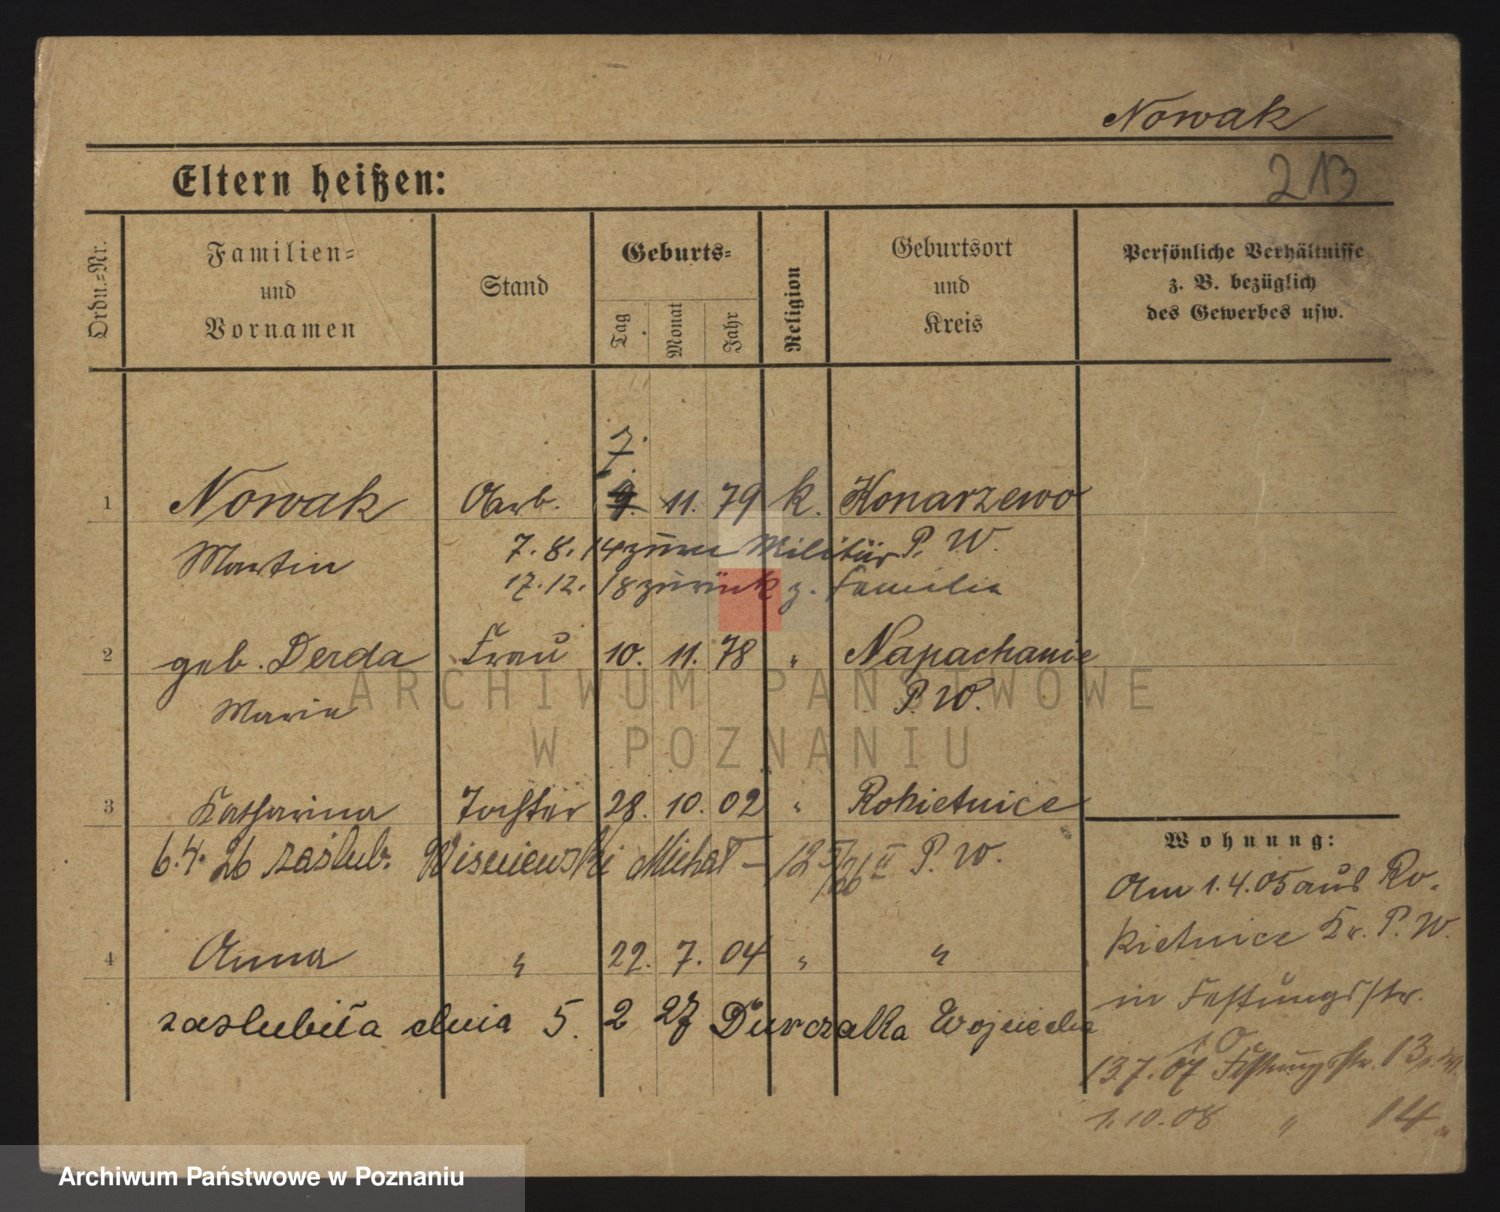 Nowak
Eltern heißen:
213
Ordn.-Nr.
Familien-
und
Vornamen
Stand
Geburts-
Tag
Monat
Jahr
Religion
Geburtsort
und
Kreis
Persönliche Verhältnisse
z. B. bezüglich
des Gewerbes usw.
7.
1 Nowak Arb. 9. 11. 79 k. Konarzewo
Martin 7. 8. 14 zum Militär P. W.
17. 12. 18 zurück z. Familie
2 geb. Derda Frau 10. 11. 78 " Napachanie
Marie P. W.
3 Katharina Tochter 28. 10. 02 " Rokietnice
6. 4. 26 zaślub. Wisniewski Michał – 12 II P. W.
4 Anna " 22. 7. 04 " "
zaslubiła dnia 5. 2 27 Durczalka Wojciecha
Wohnung:
Am 1. 4. 05 aus Ro-
kietnice Kr. P. W.
in Festungsstr.
10
13. 7. 07 Festungsstr. 13
1. 10. 08 " 14 "
ARCHIWUM PAŃSTWOWE
W POZNANIU
Archiwum Państwowe w Poznaniu